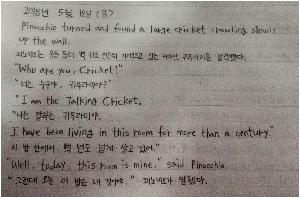 2018년 5월 18일 (금)
Pinocchio turned and found a large cricket crawling slowly
up the wall.
피노키오는 몸을 돌려 벽 위로 천천히 기어오르고 있는 커다란 귀뚜라미를 발견했다.
"Who are you, Cricket?"
"너는 누구야, 귀뚜라미야?"
"I am the Talking Cricket.
"나는 말하는 귀뚜라미야.
I have been living in this room for more than a century."
이 방 안에서 백 년도 넘게 살고 있어."
"Well, today, this room is mine," said Pinocchio.
"그런데 오늘 이 방은 내 것이야," 피노키오가 말했다.